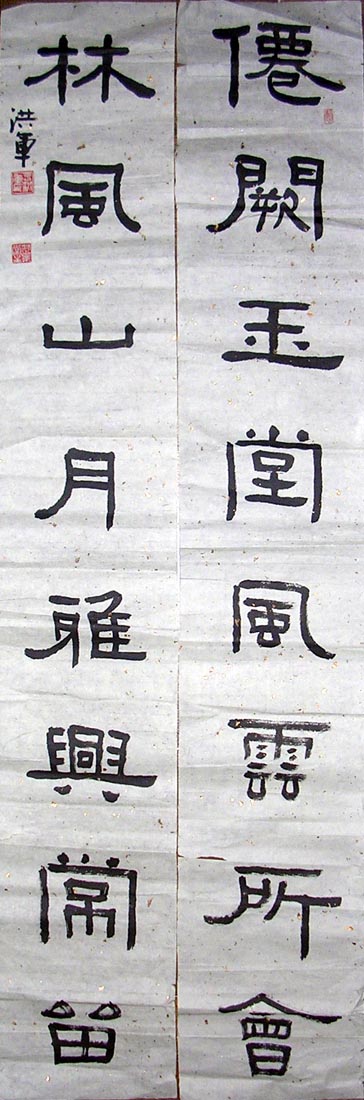 僊闕玉堂風雲所會
林風山月雅興常留
洪軍